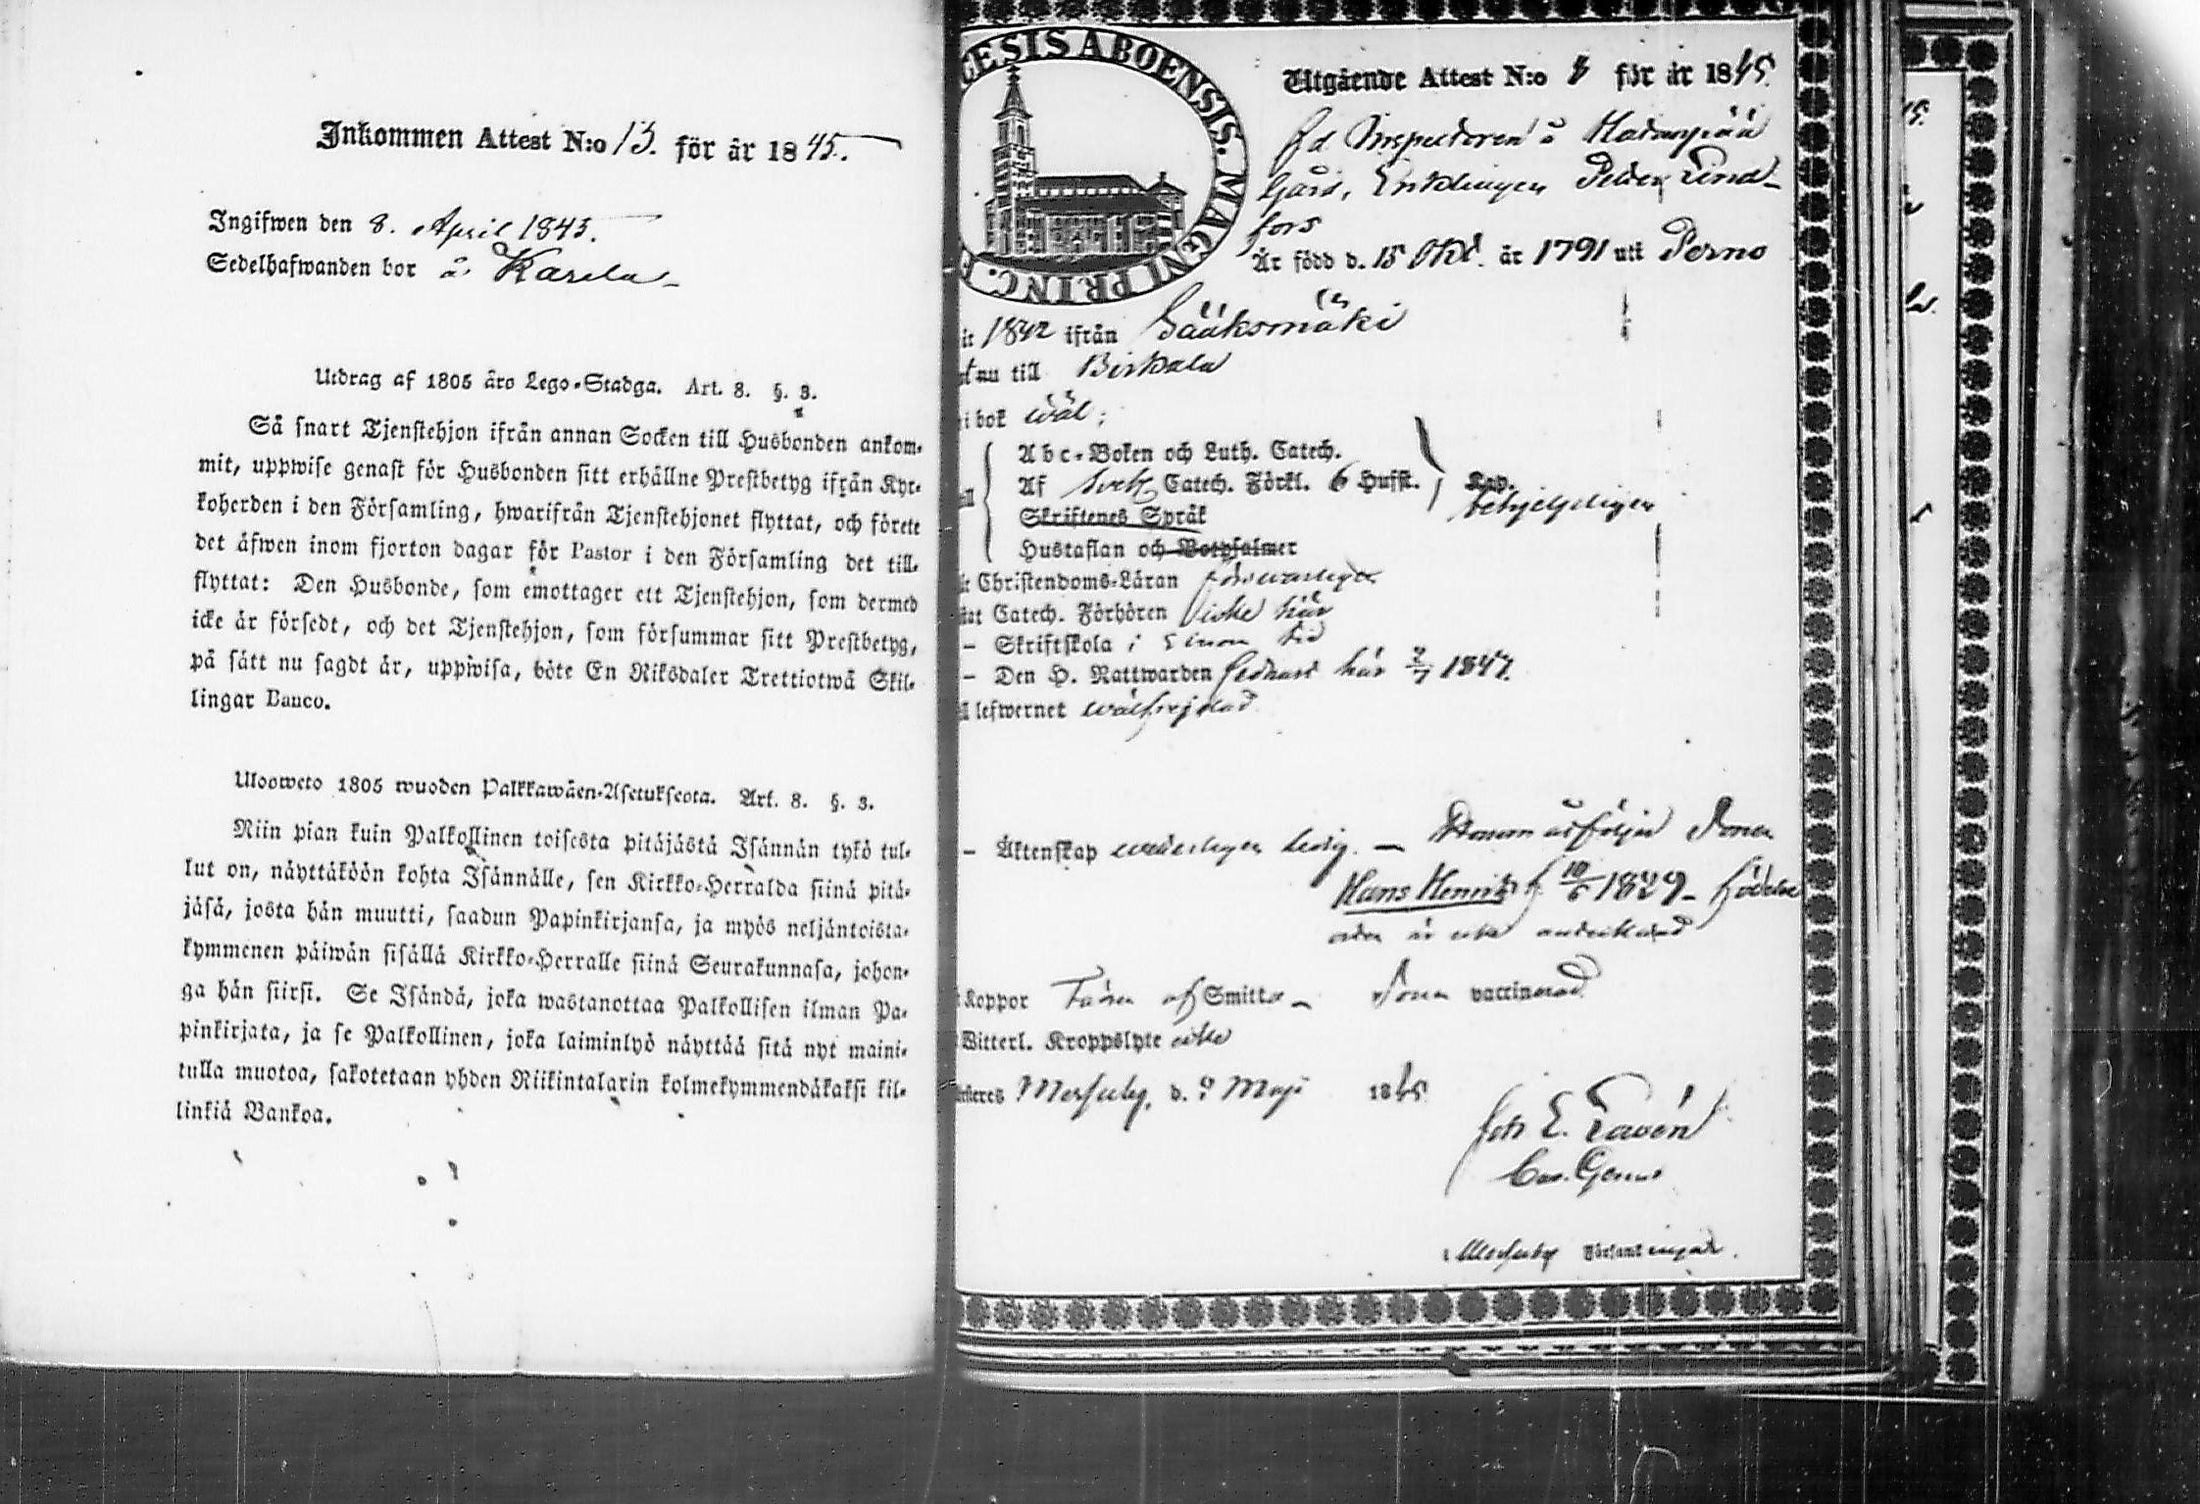 Inkommen Attest N:o 13. för år 1845.
Ingifwen den 8. April 1845.
Sedelhafwanden bor å Karela
Utdrag af 1805 åro Lego-Stadga. Art. 8. §. 3.
Så snart Tjenstehjon ifrån annan Socken till Husbonden ankom-
mit, uppwise genast för Husbonden sitt erhållne Prestbetyg ifrån Kyr-
koherden i den Församling, hwarifrån Tjenstehjonet flyttat, och förete
det äfwen inom fjorton dagar för Pastor i den Församling det till-
flyttat: Den Husbonde, som emottager ett Tjenstehjon, som dermed
icke är försedt, och det Tjenstehjon, som försummar sitt Prestbetyg,
på sätt nu sagdt är, uppwisa, böte En Riksdaler Trettiotwå Skil-
lingar Banco.
Uloosweto 1805 wuoden Palkkawäen-Asetuksesta. Art. 8. §. 3.
Niin pian kuin Palkollinen toisesta pitäjästä Isännän tykö tul-
lut on, näyttäköön kohta Isännälle, sen Kirkko-Herralda siinä pitä-
jäsä, josta hän muutti, saadun Papinkirjansa, ja myös neljäntoista-
kymmenen päiwän sisällä Kirkko-Herralle siinä Seurakunnasa, johon-
ga hän siirsi. Se Isändä, joka wastanottaa Palkollisen ilman Pa-
pinkirjata, ja se Palkollinen, joka laiminlyö näyttää sitä nyt maini-
tulla muotoa, sakotetaan yhden Riikintalarin kolmekymmendäkaksi kil-
linkiä Bankoa.
ESIS ABOENSIS. MAGNI PRINC. F
Utgående Attest N:o för år 1845.
fd Inspectoren å
Gård, Enklingen Petter Lind-
fors
Är född d. 15 Okt. år 1791 uti Perno
1842 ifrån Sääksmäki
nu till Birkala
i bok wäl;
Abc-Boken och Luth. Catech.
Af Svek Catech. Förkl. 6 Hufst. Kap.
behjelpligen
Skriftenes Språk
Hustaflan och Botpsalmer
Christendoms-Läran försvarligen
Catech. Förhören icke här
– Skriftskola i sinom tid
– Den H. Nattwarden sednast här 1844.
lefwernet wälfrejdad
– Äktenskap wederbörligen ledig. – Honom åtföljer Sonen
Hans Henrik f. 10/5 1829 – födelse
orten är icke antecknad
Koppor Faren af Smitta – Sonen vaccinerad
Witterl. Kroppslyte icke
Messuby, d. Maji 1845
Joh E. Lavén
i Messuby Församlingar.